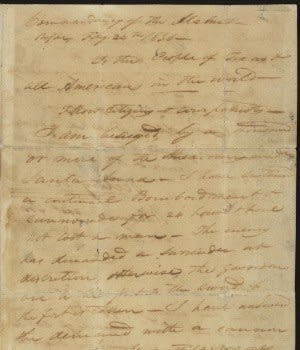 Commandancy of the Alamo—
Bejar, Fby. 24th 1836—
To the People of Texas &
all Americans in the world—
Fellow citizens & compatriots—
I am besieged, by a thousand
or more of the Mexicans under
Santa Anna — I have sustained
a continual Bombardment &
cannonade for 24 hours & have
not lost a man — The enemy
has demanded a surrender at
discretion, otherwise, the garrison
are to be put to the sword, if
the fort is taken — I have answered
the demand with a cannon